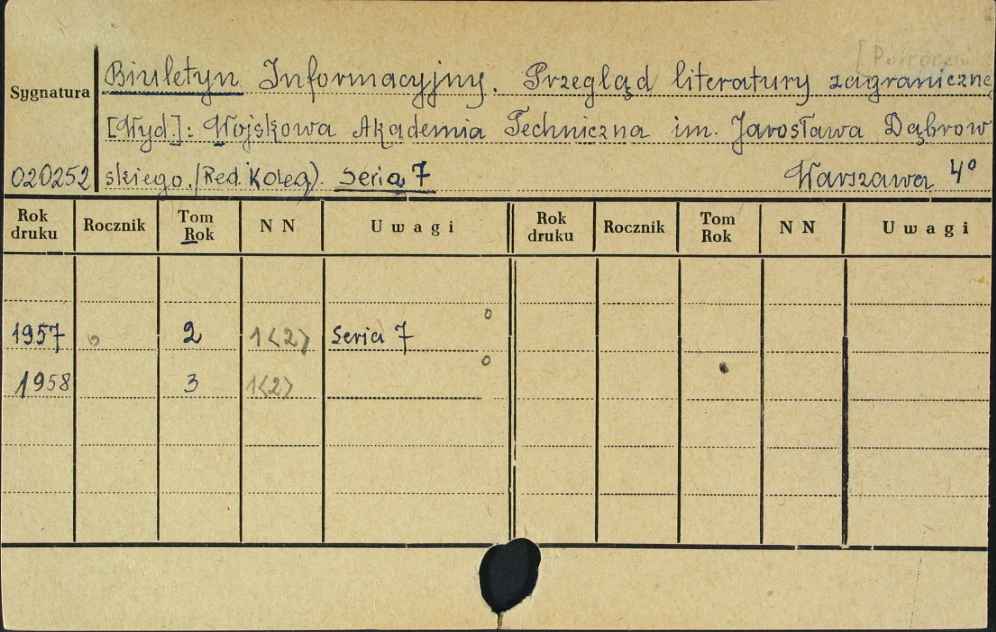 [Półroczn
Biuletyn Informacyjny. Przegląd literatury zagraniczne
Sygnatura
[Wyd.]: Wojskowa Akademia Techniczna im. Jarosława Dąbrow
020252 skiego. (Red. Koleg). Seria 7 Warszawa 4°
Rok druku Rocznik Tom Rok N N Uwagi Rok druku Rocznik Tom Rok N N Uwagi
1957 2 1<2> Seria 7
1958 3 1<2>